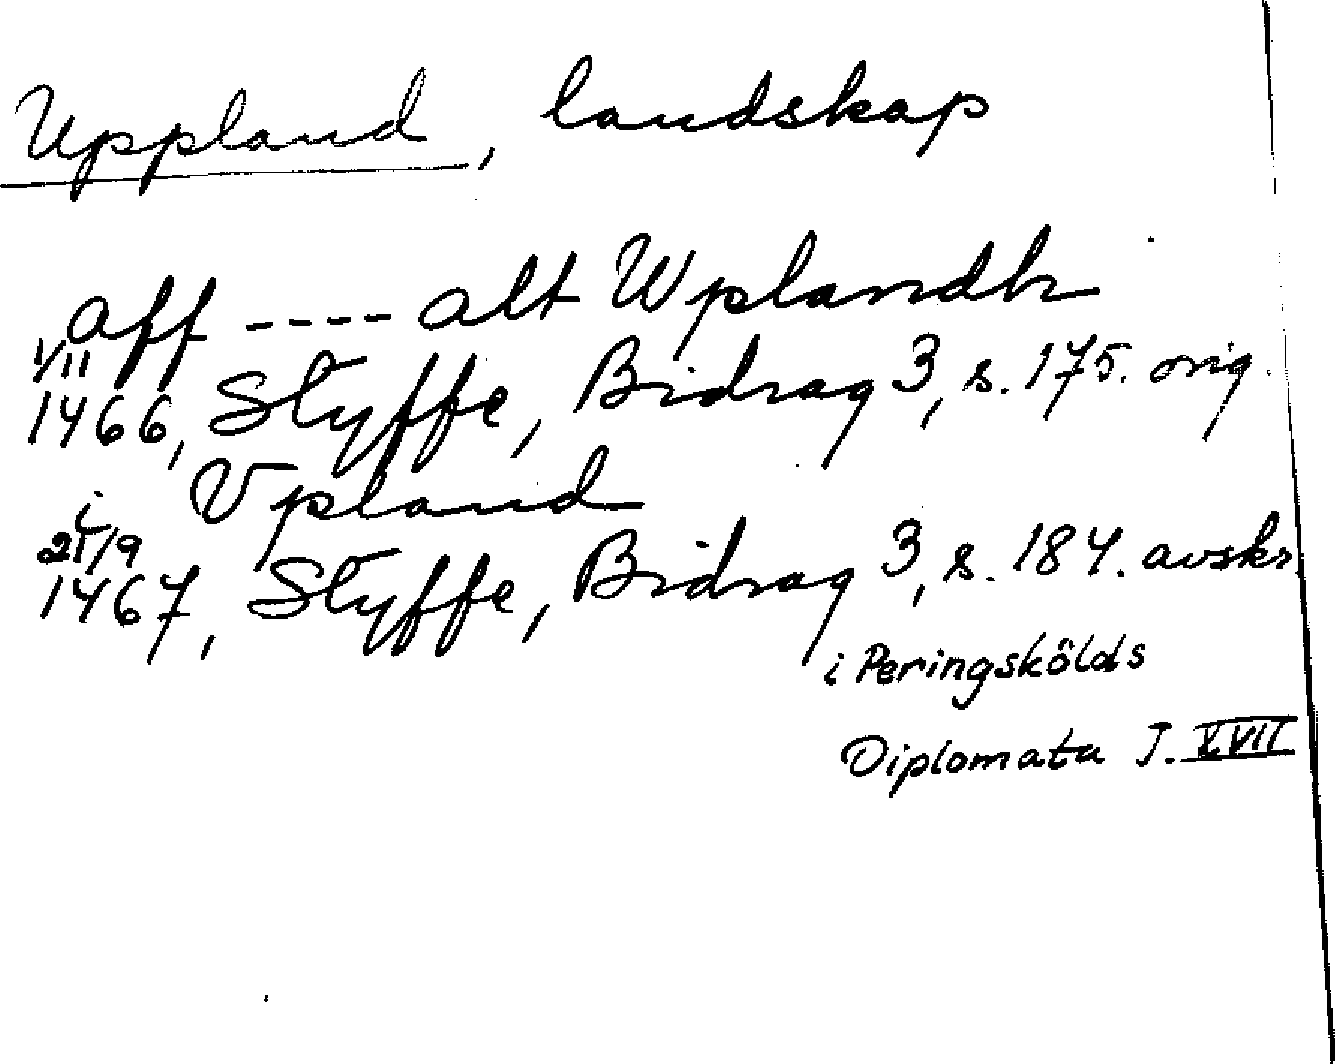 Uppland, landskap
aff ---- alt Wplandh
1/11
1466, Styffe, Bidrag 3, s. 175. orig.
i Vpland
21/9
1467, Styffe, Bidrag 3, s. 184. avskr.
i Peringskölds
Diplomata T. XVII